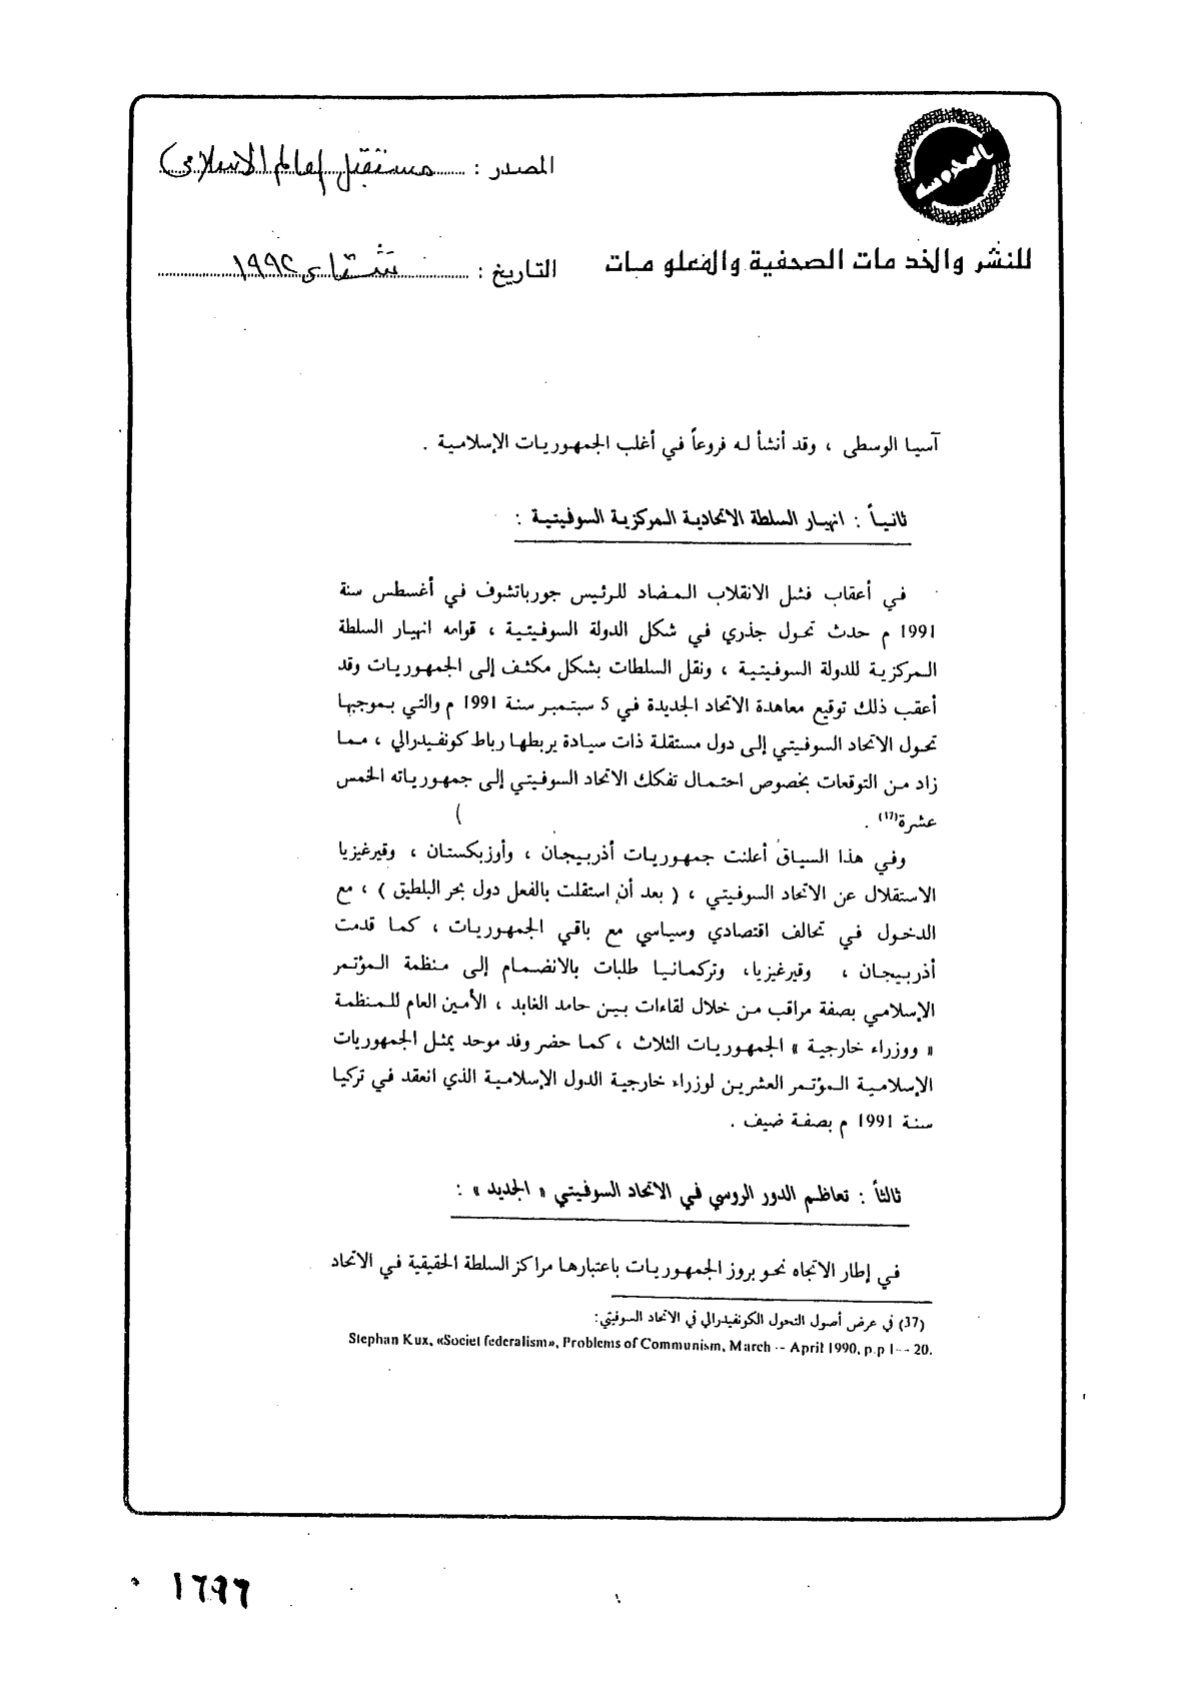 المحروسة
المصدر : مستقبل العالم الاسلامى
للنشر والخدمات الصحفية والمعلومات
التاريخ : شتاء ١٩٩٢
آسيا الوسطى ، وقد أنشأ له فروعاً في أغلب الجمهوريات الإسلامية .
ثانياً : انهيار السلطة الاتحادية المركزية السوفيتية :
في أعقاب فشل الانقلاب المضاد للرئيس جورباتشوف في أغسطس سنة
1991 م حدث تحول جذري في شكل الدولة السوفيتية ، قوامه انهيار السلطة
المركزية للدولة السوفيتية ، ونقل السلطات بشكل مكثف إلى الجمهوريات وقد
أعقب ذلك توقيع معاهدة الاتحاد الجديدة في 5 سبتمبر سنة 1991 م والتي بموجبها
تحول الاتحاد السوفيتي إلى دول مستقلة ذات سيادة يربطها رباط كونفيدرالي ، مما
زاد من التوقعات بخصوص احتمال تفكك الاتحاد السوفيتي إلى جمهورياته الخمس
عشرة(١٧) .
وفي هذا السياق أعلنت جمهوريات أذربيجان ، وأوزبكستان ، وقيرغيزيا
الاستقلال عن الاتحاد السوفيتي ، ( بعد أن استقلت بالفعل دول بحر البلطيق ) ، مع
الدخول في تحالف اقتصادي وسياسي مع باقي الجمهوريات ، كما قدمت
أذربيجان ، وقيرغيزيا، وتركمانيا طلبات بالانضمام إلى منظمة المؤتمر
الإسلامي بصفة مراقب من خلال لقاءات بين حامد الغابد ، الأمين العام للمنظمة
« ووزراء خارجية » الجمهوريات الثلاث ، كما حضر وفد موحد يمثل الجمهوريات
الإسلامية المؤتمر العشرين لوزراء خارجية الدول الإسلامية الذي انعقد في تركيا
سنة 1991 م بصفة ضيف .
ثالثاً : تعاظم الدور الروسي في الاتحاد السوفيتي « الجديد » :
في إطار الاتجاه نحو بروز الجمهوريات باعتبارها مراكز السلطة الحقيقية في الاتحاد
(37) في عرض أصول التحول الكونفيدرالي في الاتحاد السوفيتي:
Stephan Kux, «Societ federalism», Problems of Communism, March -- April 1990, p.p 1-- 20.
١٦٩٦